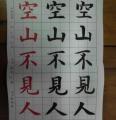 空山不見人
空山不見人
空山不見人